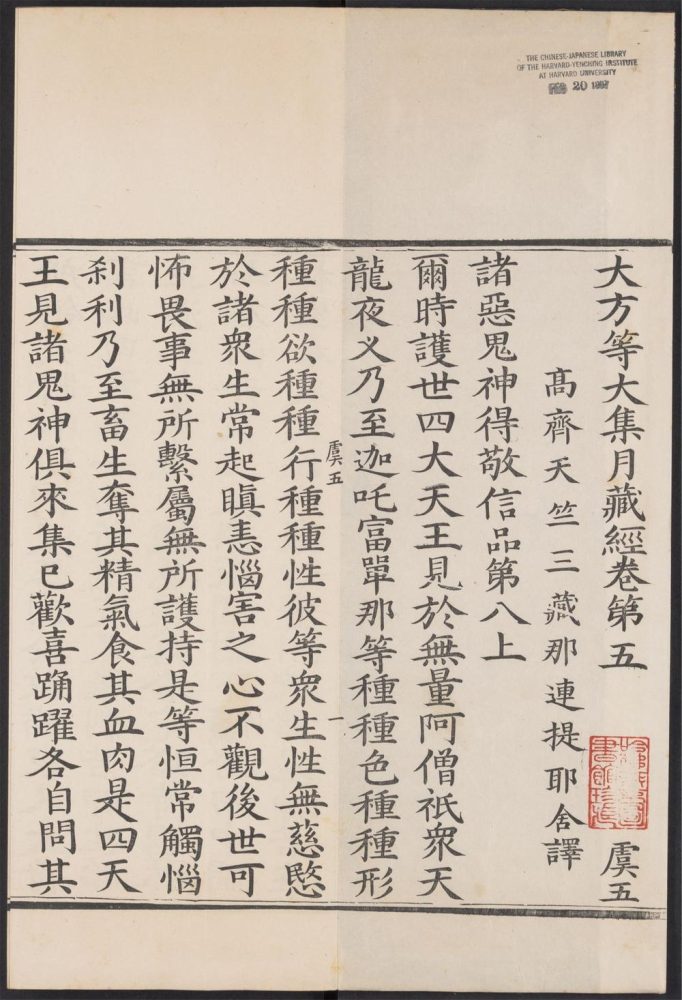 THE CHINESE-JAPANESE LIBRARY
OF THE HARVARD-YENCHING INSTITUTE
AT HARVARD UNIVERSITY
FEB 20 1937
大方等大集月藏經卷第五
虞五
髙齊天竺三藏那連提耶舍譯
諸惡鬼神得敬信品第八上
爾時護世四大天王見於無量阿僧祇衆天
龍夜义乃至迦吒富單那等種種色種種形
虞五
一
種種欲種種行種種性彼等衆生性無慈愍
於諸衆生常起瞋恚惱害之心不觀後世可
怖畏事無所繫屬無所護持是等恒常觸惱
刹利乃至畜生奪其精氣食其血肉是四天
王見諸鬼神俱來集已歡喜踊躍各自問其